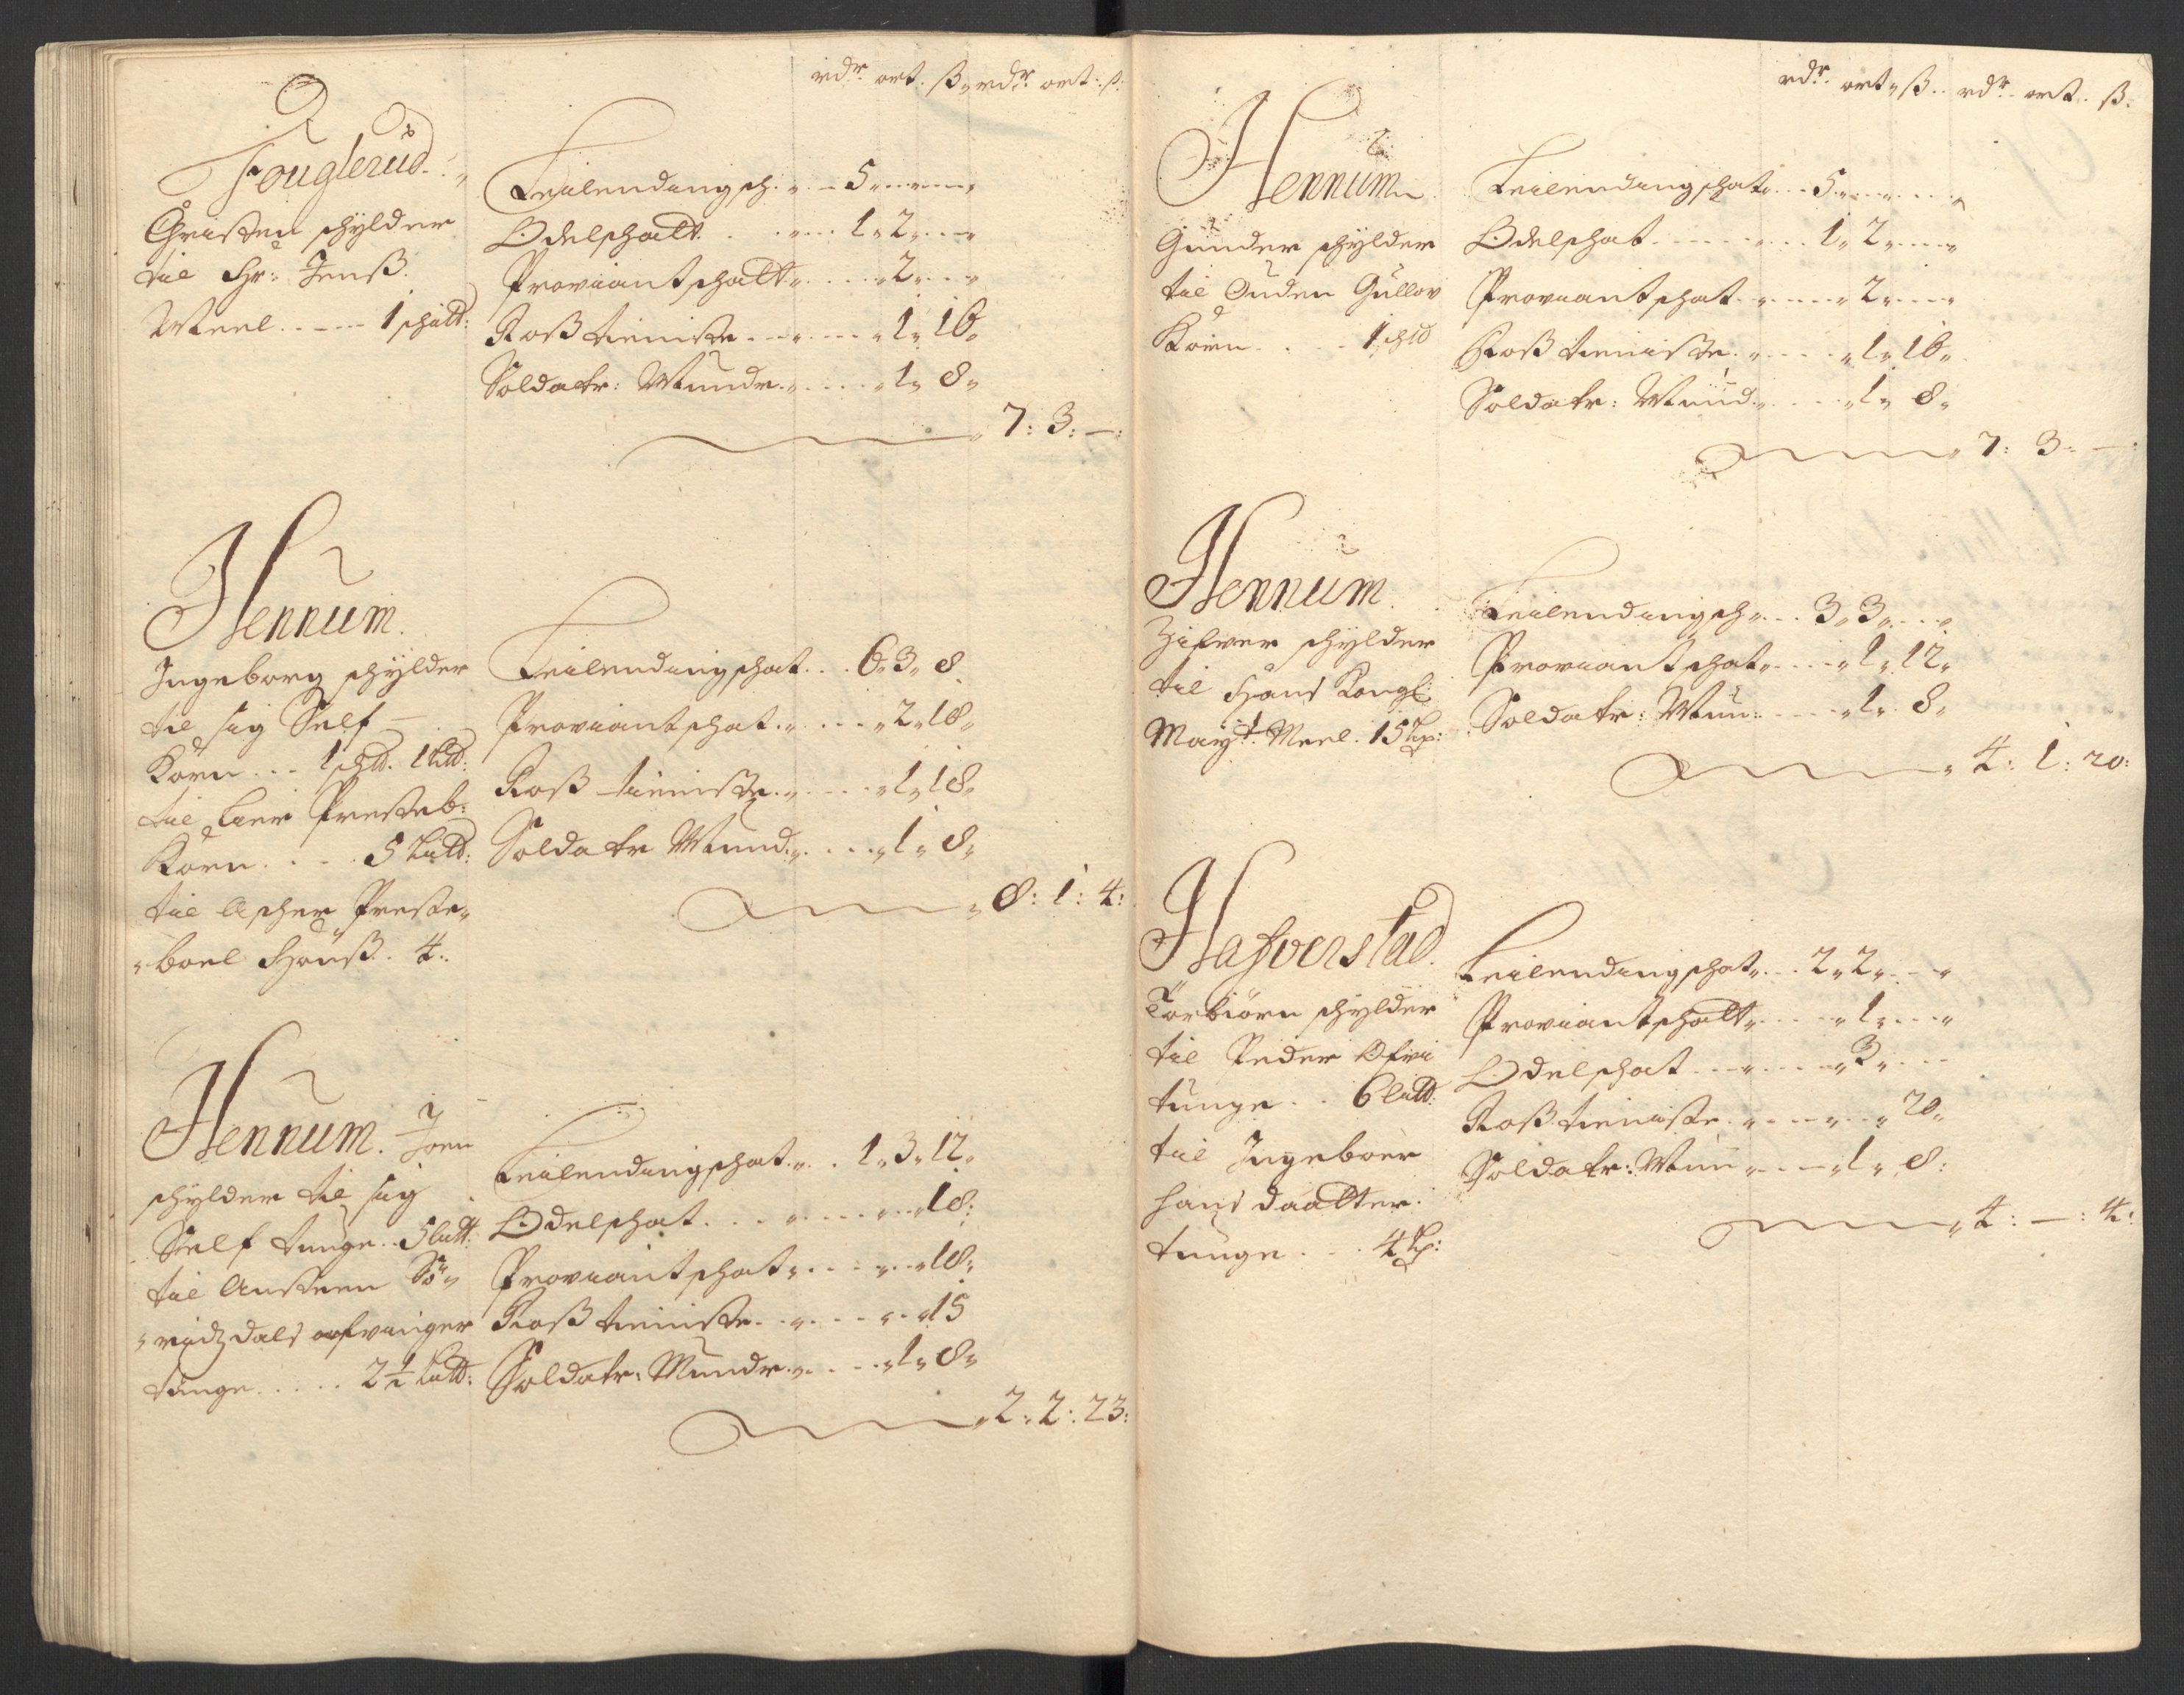 rdr. ort. ß. rdr. ort: ß:
Fouglerud
Christen schylder
til Hr: Jenß
Meel ..... 1 schild:
Leilendingsch. 5
Odelschatt ... 1. 2
Proviantschatt ... 2
Roßtieniste ... 1. 16
Soldatr: Mundr ... 1. 8
7: 3: —:
Hennum.
Ingeborg schylder
til sig Self —
Korn ... 1 schld. 1 Litd:
til Lier Presteb:
Korn ... 5 Litd:
til Asher Preste-
boel Houß. 4.
Leilendingschat .. 6. 3. 8
Proviantschat ... 2. 18
Roß tieniste ... 1. 18
Soldatr Mund ... 1. 8
8: 1: 4:
Hennum. Joen
schylder til sig
Self tunge .. 5 litt:
til Ansteen Sö-
ridzdals arfvinger
tunge ..... 2½ Litd:
Leilendingschat .. 1. 3. 12
Odelschat ... 18:
Proviantschat ... 18
Roßtieniste ... 15
Soldatr: Mundr ... 1. 8
2: 2: 23:
rdr. ort. ß. rdr. ort. ß.
Hennum
Gunder schylder
til Ouden Gullov
Korn .... 1 schld
Leilendingschat ... 5
Odelschat ... 1. 2
Proviantschat ... 2
Roß tieniste ... 1. 16
Soldatr: Mund ... 1. 8
7: 3: —:
Hennum.
Zifver schylder
til Hans Kongl:
Mayt. Meel. 15 lp:
Leilendingsch ... 3. 3
Proviantschat ... 1. 12
Soldatr: Mun: ... 1. 8
4: 1: 20:
Hafverstad.
Torbiörn schylder
til Peder Ofri
tunge .. 6 Litd:
til Ingeboer
Hans daatter.
tunge ... 4 lp:
Leilendingschat ... 2. 2
Proviantschatt ... 1
Odelschat ... 3
Roßtieniste ... 20
Soldatr: Mun ... 1. 8:
4: —: 4: